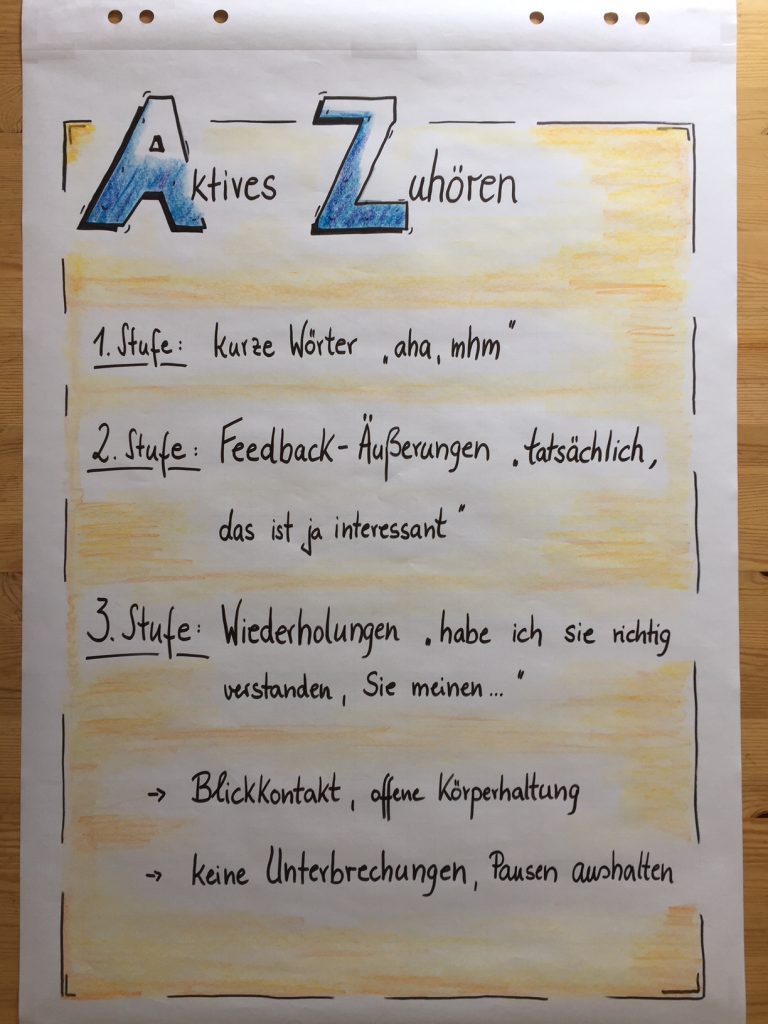 Aktives Zuhören
1. Stufe: kurze Wörter „aha, mhm“
2. Stufe: Feedback-Äußerungen „tatsächlich,
das ist ja interessant“
3. Stufe: Wiederholungen „habe ich sie richtig
verstanden, Sie meinen..."
→ Blickkontakt, offene Körperhaltung
→ keine Unterbrechungen, Pausen aushalten